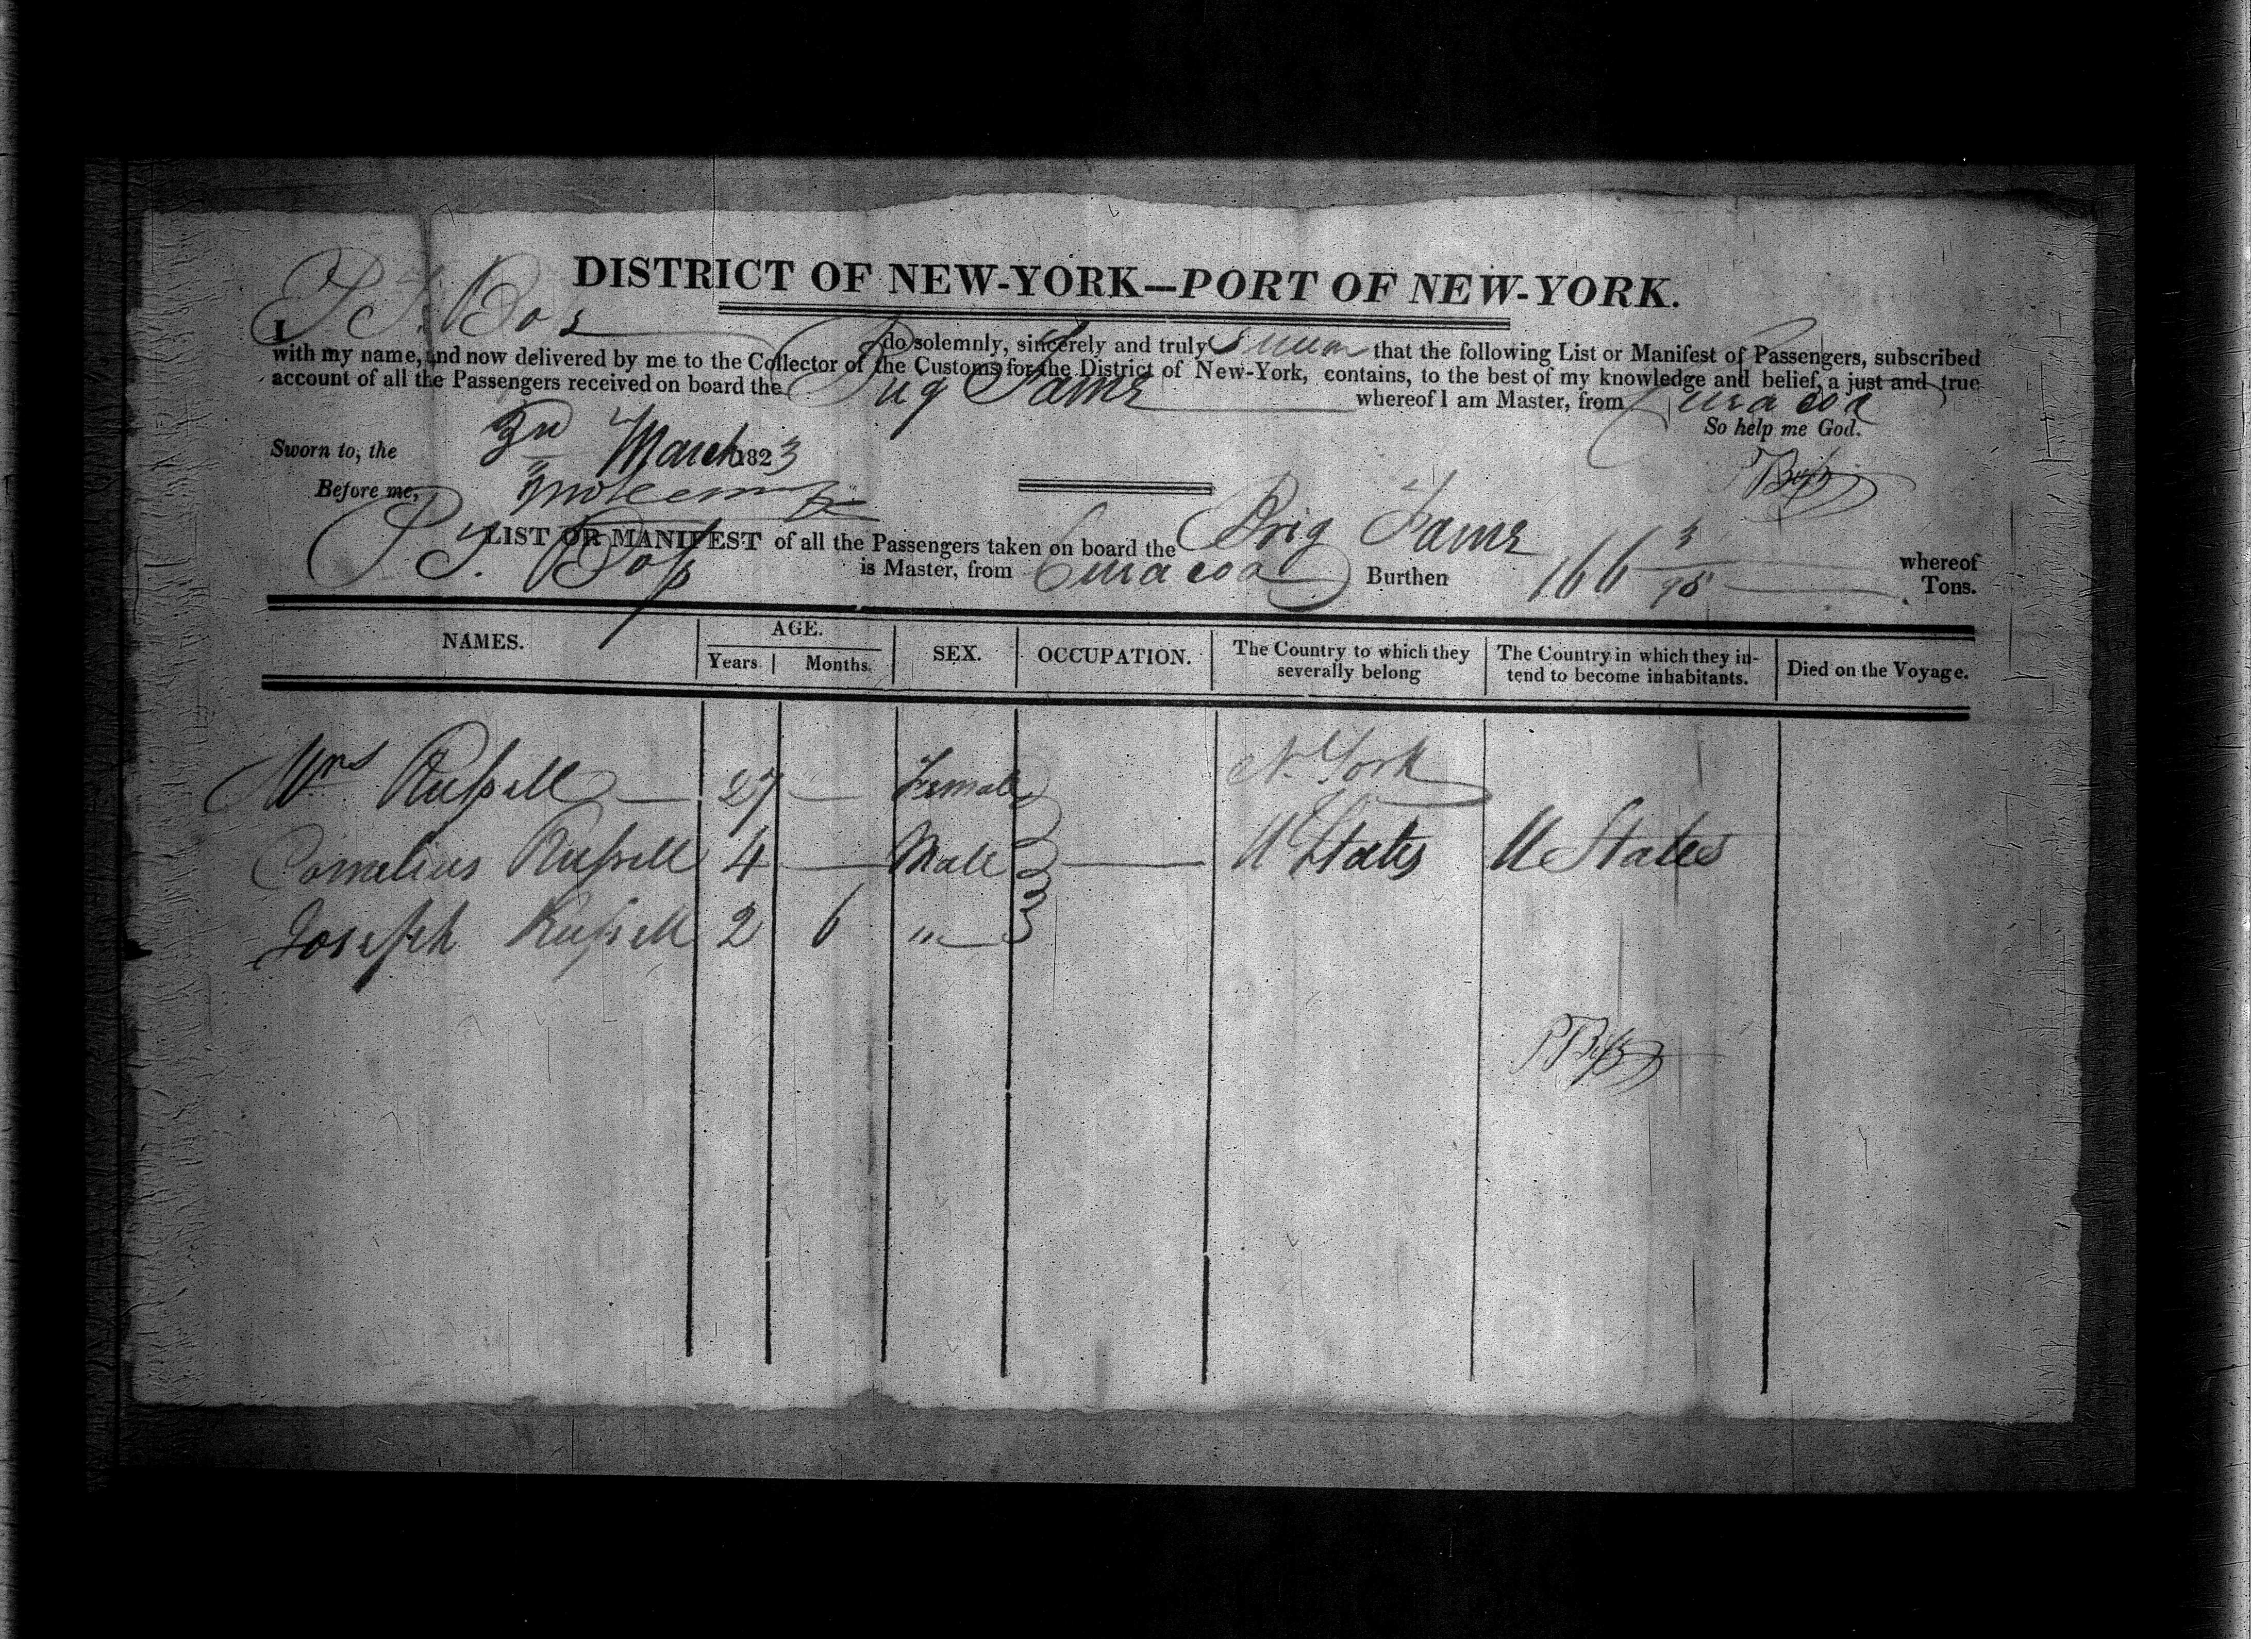 DISTRICT OF NEW-YORK—PORT OF NEW-YORK.
I P. J. Bos do solemnly, sincerely and truly swear that the following List or Manifest of Passengers, subscribed
with my name, and now delivered by me to the Collector of the Customs for the District of New-York, contains, to the best of my knowledge and belief, a just and true
account of all the Passengers received on board the Brig Fame whereof I am Master, from Curacoa
So help me God.
Sworn to, the 3rd March 1823
Before me,
LIST OR MANIFEST of all the Passengers taken on board the Brig Fame whereof
P. J. Bos is Master, from Curacoa Burthen 166 3/95 Tons.
NAMES. AGE. SEX. OCCUPATION. The Country to which they severally belong The Country in which they intend to become inhabitants. Died on the Voyage.
Years Months.
Mrs Russell — 27 — Female N. York
Cornelius Russell 4 — Male — U States U States
Joseph Russell 2 6 "